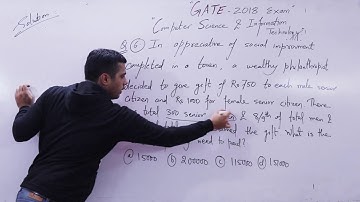 Solution
"GATE-2018 Exam"
"Computer Science & Information
Technology"
Q. 6) In appreciative of social improvment
completed in a town, a wealthy philanthropist
decided to give gift of Rs 750 to each male senior
citizen and Rs 1000 for female senior citizen. There
total 300 senior & 8/9th of total men &
the gift. What is the
need to paid?
(a) 15000 (b) 200000 (c) 115000 (d)